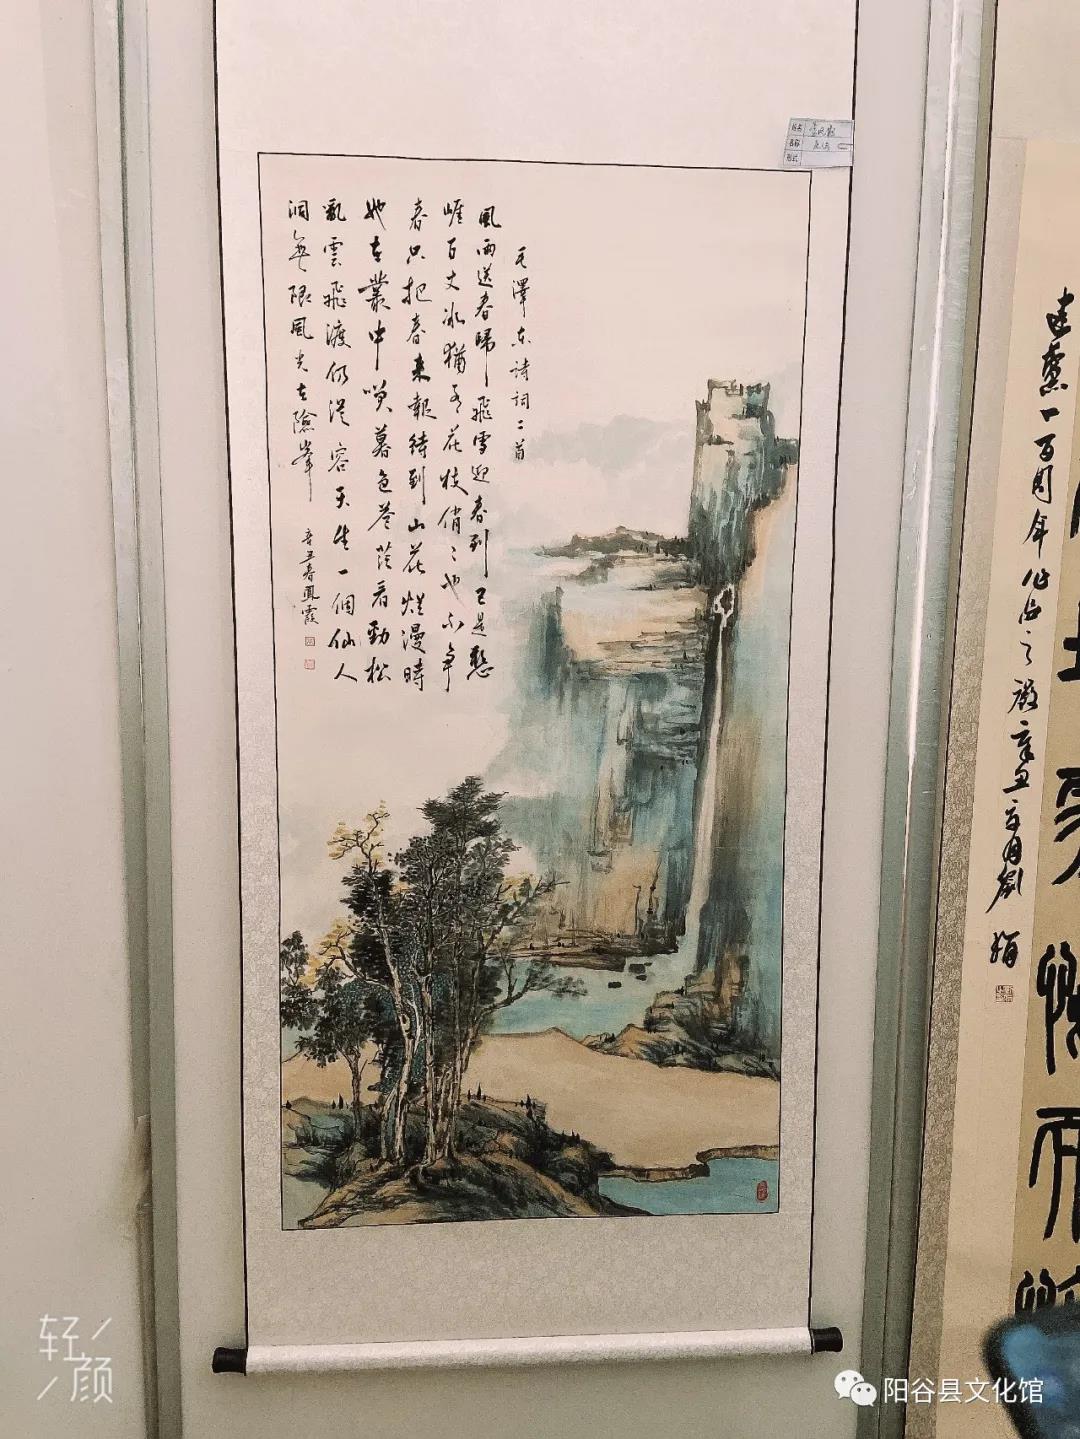 毛澤東詩詞二首
風雨送春歸飛雪迎春到已是懸
崖百丈冰猶有花枝俏〻也不爭
春只把春來報待到山花爛漫時
她在叢中笑暮色蒼茫看勁松
亂雲飛渡仍從容天生一個仙人
洞無限風光在險峰
辛丑春鳳霞
姓名
名称
形式
建黨一百周年作
辛丑
轻颜
阳谷县文化馆